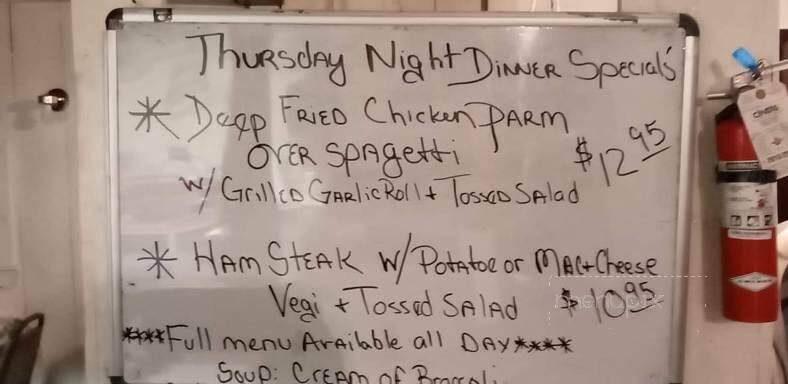 Thursday Night Dinner Special's
* Deep Fried Chicken Parm
over Spagetti $12.95
w/ Grilled Garlic Roll + Tossed Salad
* Ham Steak w/ Potatoe or Mac + Cheese
Vegi + Tossed Salad $10.95
****Full menu Available all Day****
Soup: Cream of Broccoli